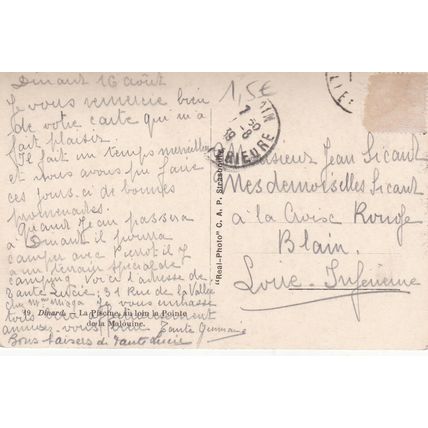 Dinard 16 Août
Je vous remercie bien
de votre carte qui m'a
fait plaisir.
Il fait un temps merveilleux
et nous avons pu faire
ces jours ci de bonnes
promenades.
Quand Jean passera
à Dinard il pourra
camper avec Pierrot il y
a un terrain spécial de
camping. Voici l'adresse de
Tante Lucie, 31 Rue de la Vallée
Je vous embrasse
tous
amusez-vous bien Tante Germaine
Bons baisers de Tante Lucie
19 Dinard. - La Piscine, au loin la Pointe
de la Malouine.
"Real-Photo" C. A. P. Strasbourg
1,5€
AIN
RIEURE
Messieurs Jean Sicard
Mesdemoiselles Sicard
à la Croix Rouge
Blain
Loire-Inférieure